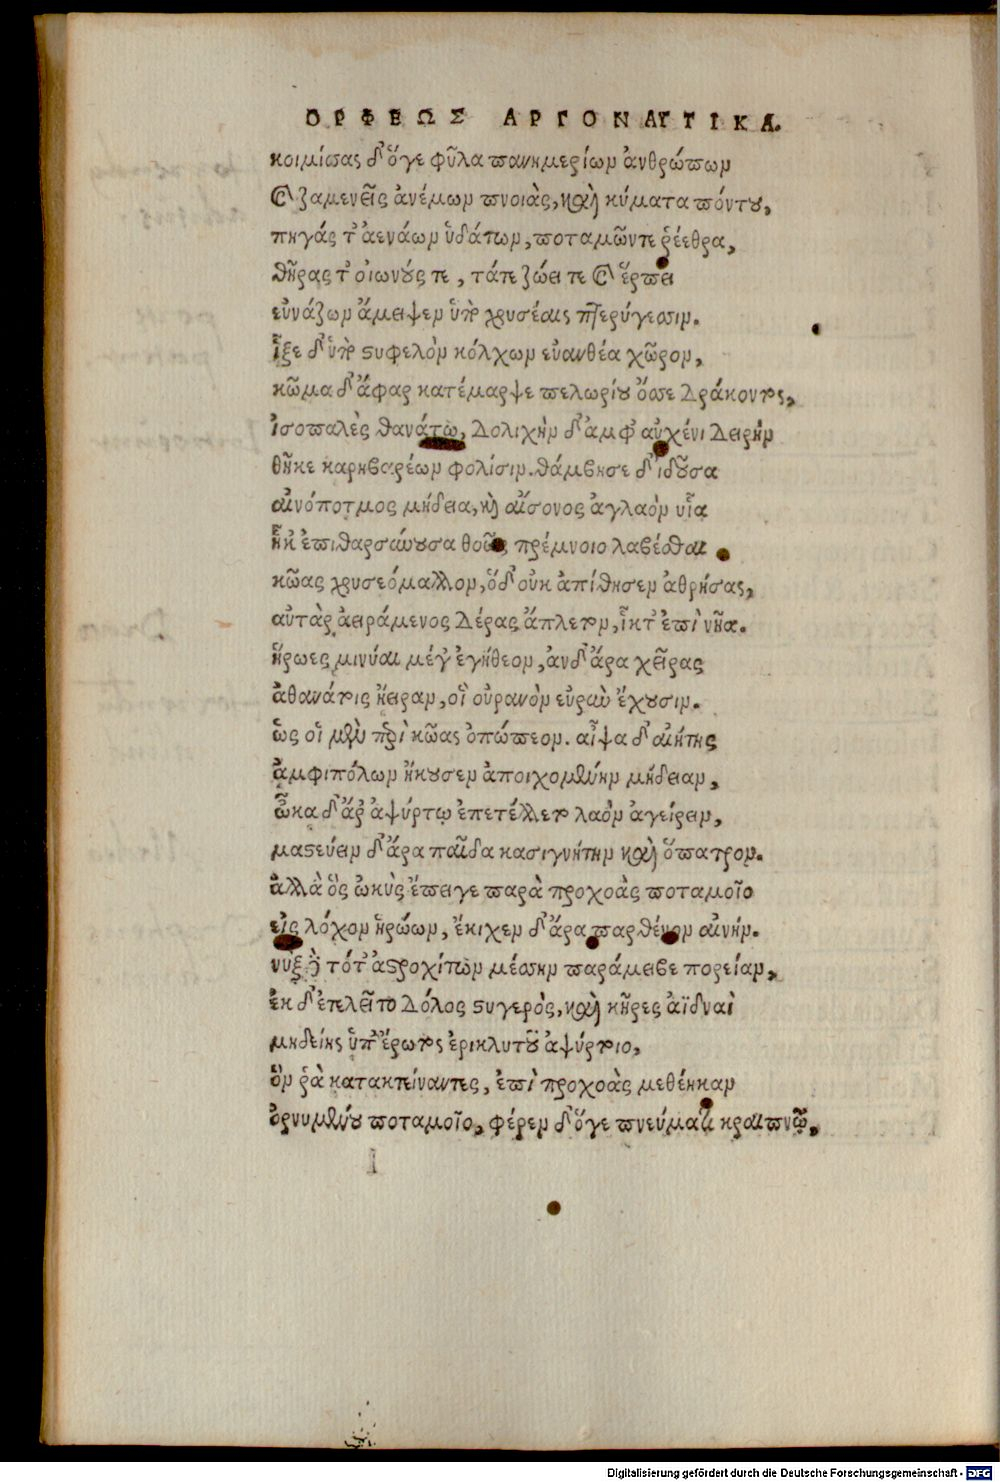 ΟΡΦΕΩΣ ΑΡΓΟΝΑΥΤΙΚΑ.
κοιμίσας δ' ὅγε φῦλα πανημερίων ἀνθρώπων
καὶ ζαμενεῖς ἀνέμων πνοιὰς, καὶ κύματα πόντου,
πηγάς τ' ἀενάων ὑδάτων, ποταμῶν τε ῥέεθρα,
θῆρας τ' οἰωνούς τε, τά τε ζώει τε καὶ ἕρπει
εὐνάζων ἄμειψεν ὑπὸ χρυσέαις πτερύγεσσιν.
ἷξε δ' ὑπὸ στυφελὸν κόλχων εὐανθέα χῶρον,
κῶμα δ' ἄφαρ κατέμαρψε πελωρίου ὄσσε δράκοντος,
ἰσοπαλὲς θανάτω, δολιχὴν δ' ἀμφ' αὐχένι δειρὴν
θῆκε καρηβαρέων φολίσιν. θάμβησε δ' ἰδοῦσα
αἰνόποτμος μήδεια, καὶ αἴσονος ἀγλαὸν υἷα
ἧκ' ἐπιθαρσύνουσα θοῶς πρέμνοιο λαβέσθαι
κῶας χρυσεόμαλλον, ὅδ' οὐκ ἀπίθησεν ἀθρήσας,
αὐτὰρ ἀειράμενος δέρας ἄπλετον, ἷκτ' ἐπὶ νῆα.
ἥρωες μινύαι μέγ' ἐγήθεον, ἀν δ' ἄρα χεῖρας
ἀθανάτοις ἤειραν, οἳ οὐρανὸν εὐρὺν ἔχουσιν.
ὣς οἳ μὲν περὶ κῶας ὀπώπεον. αἶψα δ' αἰήτης
ἀμφιπόλων ἤκουσεν ἀποιχομένην μήδειαν,
ὦκα δ' ἄρ' ἀψύρτῳ ἐπετέλλετο λαὸν ἀγείρειν,
μαστεύειν δ' ἄρα παῖδα κασιγνήτην καὶ ὄπατρον.
ἀλλὰ ὃς ὠκὺς ἔπειγε παρὰ προχοὰς ποταμοῖο
εἰς λόχον ἡρώων, ἔκιχεν δ' ἄρα παρθένον αἰνήν.
νὺξ δὲ τότ' ἀστροχίτων μέσσην παράμειβε πορείαν,
ἐκ δ' ἐτελεῖτο δόλος στυγερὸς, καὶ κῆρες ἀϊδναὶ
μηδείης ὑπ' ἔρωτος ἐρικλυτοῦ ἀψύρτοιο,
ὅν ῥὰ κατακτείναντες, ἐπὶ προχοὰς μεθέηκαν
ὀρνυμένου ποταμοῖο, φέρεν δ' ὅγε πνεύματι κραιπνῷ,
Digitalisierung gefördert durch die Deutsche Forschungsgemeinschaft - DFG